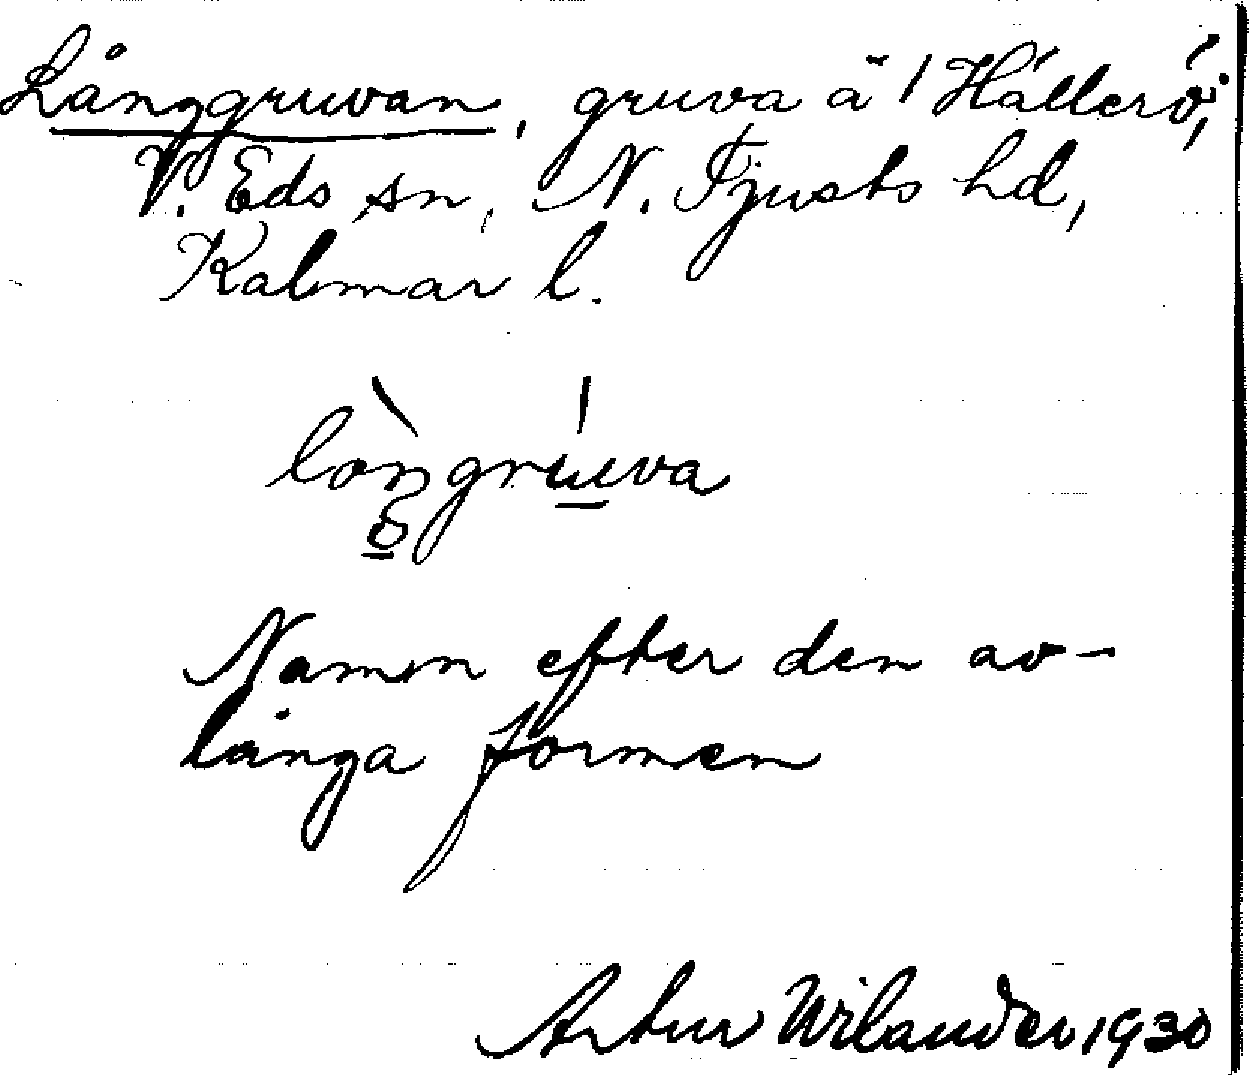 Långgruvan, gruva å / Hällerö,
V. Eds sn, N. Tjusts hd,
Kalmar l.
làngrúva
Namn efter den av-
långa formen
Artur Wilander 1930